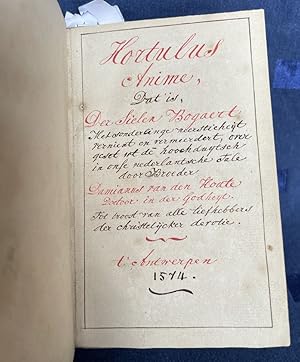 Hortulus
Anime,
Dat is,
Der Sielen Bogaert
Met sonderlinge neersticheyt
vernieut en vermeerdert, over
geset wt de hoochduytsch
in onse nederlantsche tale
door Broeder
Damianus van den Houte
Doctoor in der Godheyt.
Tot troost van alle liefhebbers
der christelijcker devotie.
t'Antwerpen
1574.